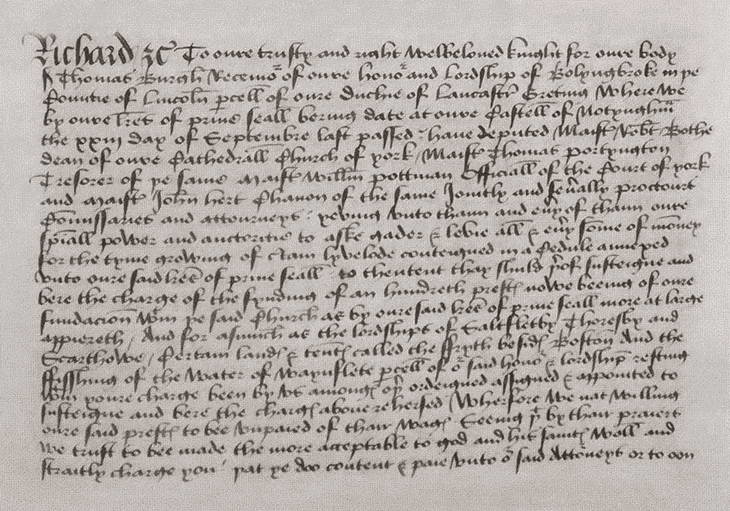 Richard &c To oure trusty and right welbeloved knight for oure body
Thomas Burgh Receivor of oure honor and lordship of Bolyngbroke in ye
Countie of Lincoln pcell of oure Duchie of Lancastr Greting Where we
by oure lres of prive seall bering date at oure Castell of Notyngham
the xxiii day of Septembre last passed have deputed Maistr Robt Bothe
dean of oure Cathedrall Church of york Maistr Thomas portyngton
Tresorer of ye same Maistr Willm pottman Officiall of the Court of york
and Maistr John hert Chanon of the same Jointly and sevally procourt
Comissaries and attourneys yeving unto thaim and evy of thaim oure
spiall power and auctoritie to aske gader & levie all & evy some of money
for the tyme growing of ctain lyvelode conteigned in a Cedule annexed
unto oure said lres of prive seall to thentent thay shuld yof susteigne and
bere the charge of the fynding of an hundreth prestes nowe beeing of oure
fundacion wtin ye said Church as by oure said lres of prive seall more at large
appiereth And for asmuch as the lordships of Saltfletby Thoresby and
Scarthowe Certain landes & tentes called the ffryth beside Boston And the
ffisshing of the Water of Waynflete pcell of or said honor & lordship resting
wtin youre charge been by us amonges othr ordeigned assigned & appointed to
susteigne and bere the charges above rehersed Wherfore we nat willing
oure said prestes to bee unpaied of thair wages Seeing yt by thair praiers
we trust to bee made the more acceptable to god and his saintes woll and
straitly charge you yat ye doo content & paie unto or said Attorneys or to oon